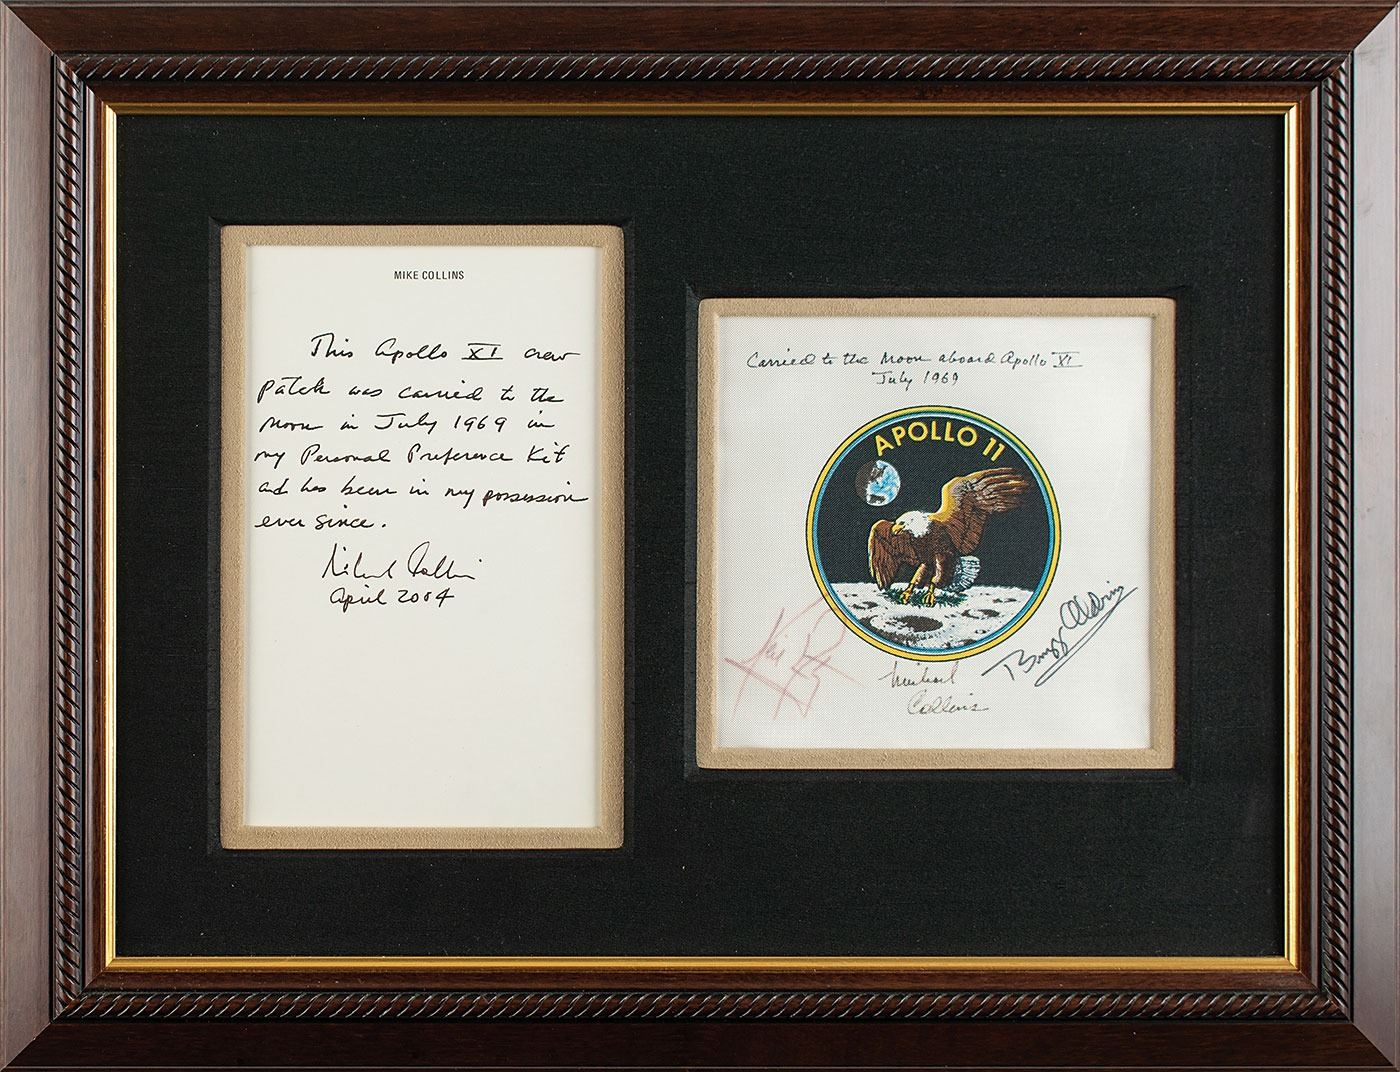 MIKE COLLINS
This Apollo XI crew
patch was carried to the
Moon in July 1969 in
my Personal Preference Kit
and has been in my possession
ever since.
Michael Collins
April 2004
Carried to the Moon aboard Apollo XI
July 1969
APOLLO 11
Neil
Michael
Collins
Buzz Aldrin